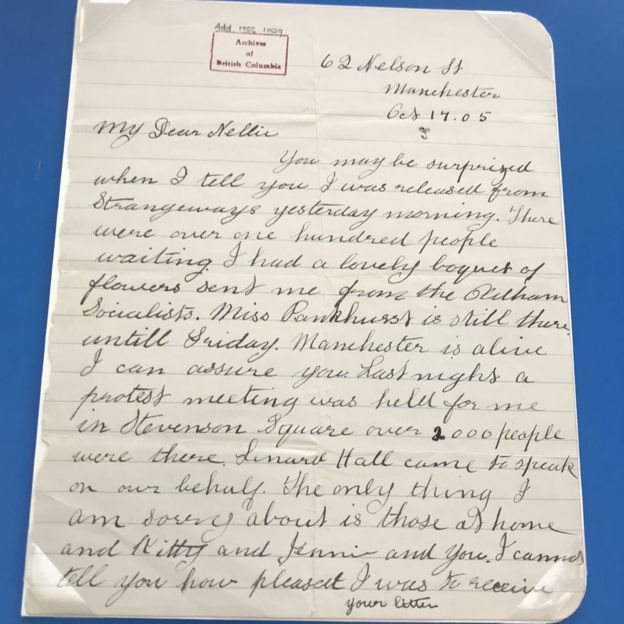 Add. MSS. 1029
Archives
of
British Columbia
62 Nelson St
Manchester
Oct 17.05
My Dear Nellie
You may be surprized
when I tell you I was released from
Strangeways yesterday morning. There
were over one hundred people
waiting I had a lovely boquet of
flowers sent me from the Oldham
Socialists. Miss Pankhurst is still there,
untill Friday. Manchester is alive
I can assure you. Last night a
protest meeting was held for me
in Stevenson Square over 2000 people
were there. Linard Hall came to speak
on our behalf. The only thing I
am sorry about is those at home
and Kitty and Jennie and you. I cannot
tell you how pleased I was to receive
your letter